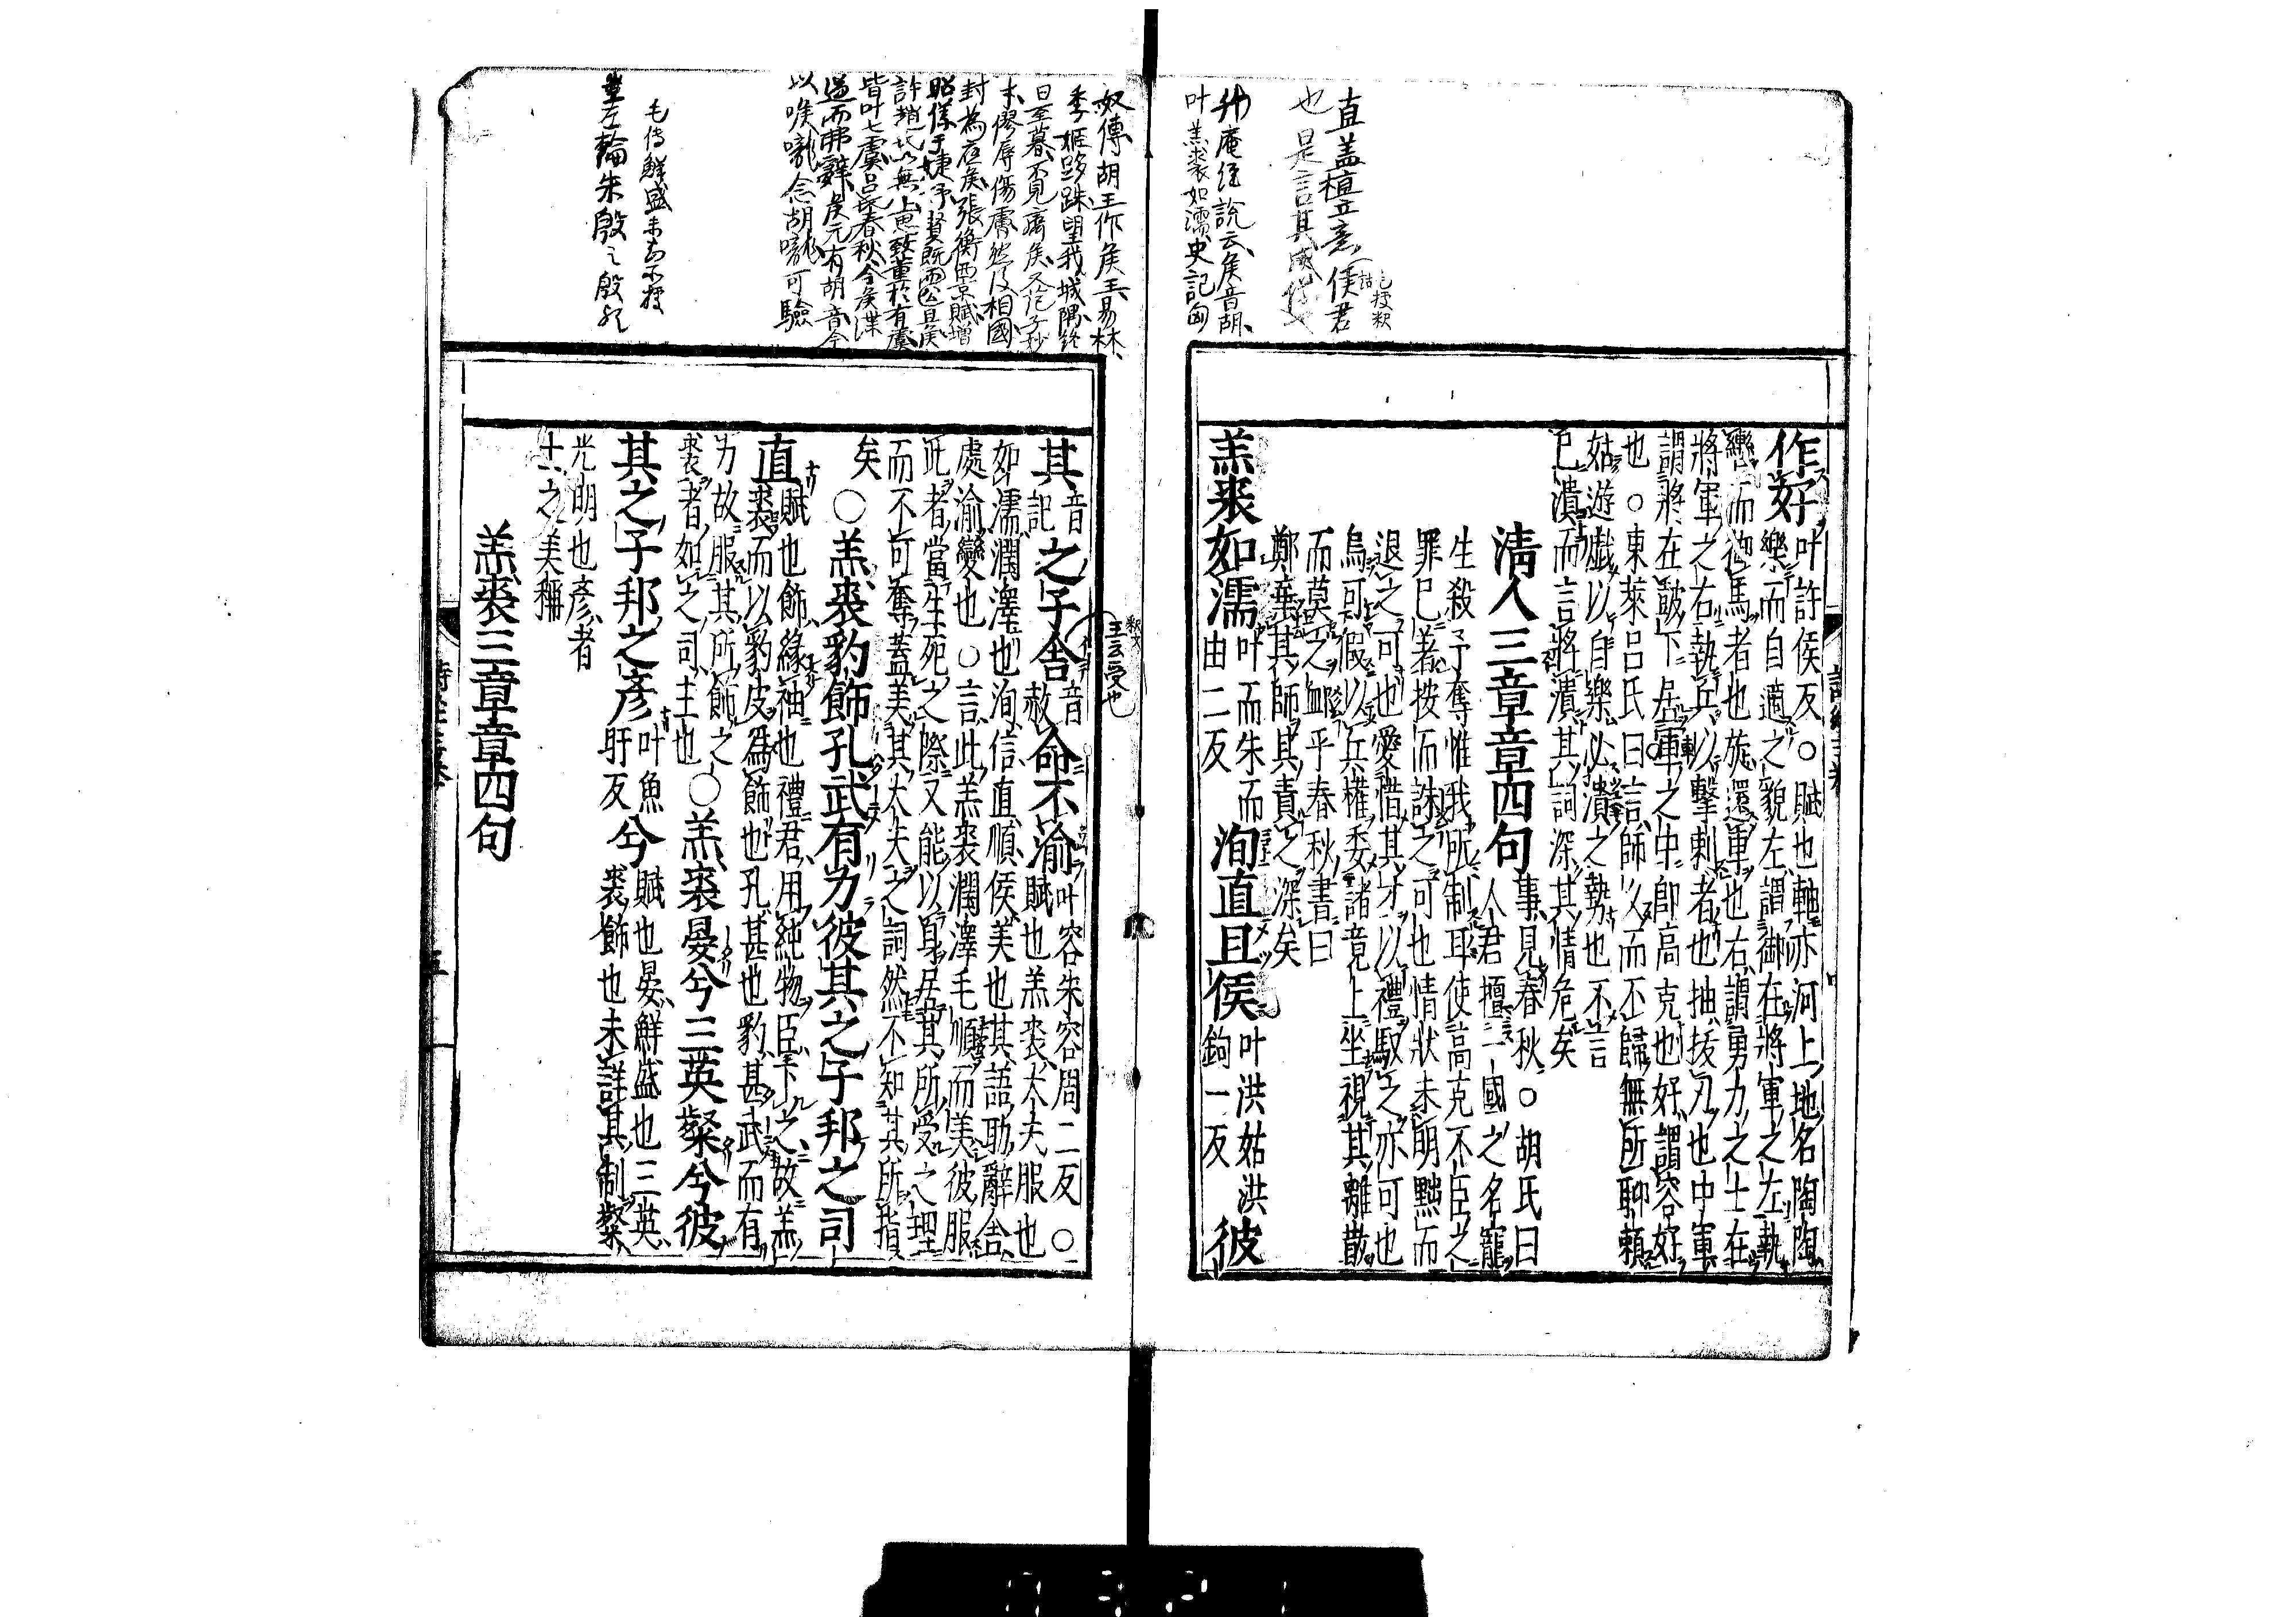 直盖植立意
侯君
也是言其
升庵經說云侯音胡
叶羔裘如濡史記匈
奴傳胡王作侯王易林
季姬踟蹰望我城隅終
日至暮不見齊侯又
封爲
侯張衡西京賦增
昭儀于婕妤賢既公且侯
許趙氏以無上思致董於有虞
皆叶
呂氏春秋今侯渫
過而弗辭侯元有胡音今
以喉嚨念胡嚨可驗
毛傳鮮盛
左輪朱殷之殷
作好叶許侯反○賦也軸亦河上地名陶陶
樂而自適之貌左謂御在將軍之左執
轡而御馬者也旋還車也右謂勇力之士在
將軍之右執兵以擊刺者也抽拔刃也中軍
謂將在鼓下居車之中卽高克也好謂容好
也○東萊呂氏曰言師久而不歸無所聊賴
姑遊戲以自樂必潰之勢也不言
已潰而言將潰其詞深其情危矣
清人三章章四句事見春秋○胡氏曰
人君擅一國之名寵
生殺予奪惟我所制耳使高克不臣之
罪已著按而誅之可也情狀未明黜而
退之可也愛惜其才以禮馭之亦可也
烏可假以兵權委諸竟上坐視其離散
而莫之卹乎春秋書曰
鄭棄其師其責之深矣
羔裘如濡叶而朱而由二反洵直且侯叶洪姑洪鉤一反彼
其音記之子舍音赦命不渝叶容朱容周二反○
賦也羔裘大夫服也
如濡潤澤也洵信直順侯美也其語助辭舍
處渝變也○言此羔裘潤澤毛順而美彼服
此者當生死之際又能以身居其所受之理
而不可奪蓋美其大夫之詞然不知其所指
矣○羔裘豹飾孔武有力彼其之子邦之司
直賦也飾緣袖也禮君用純物臣下之故羔
裘而以豹皮爲飾也孔甚也豹甚武而有
力故服其所飾之
裘者如之司主也○羔裘晏兮三英粲兮彼
其之子邦之彥叶魚旰反兮賦也晏鮮盛也三英
裘飾也未詳其制粲
光明也彥者
士之美稱
羔裘三章章四句